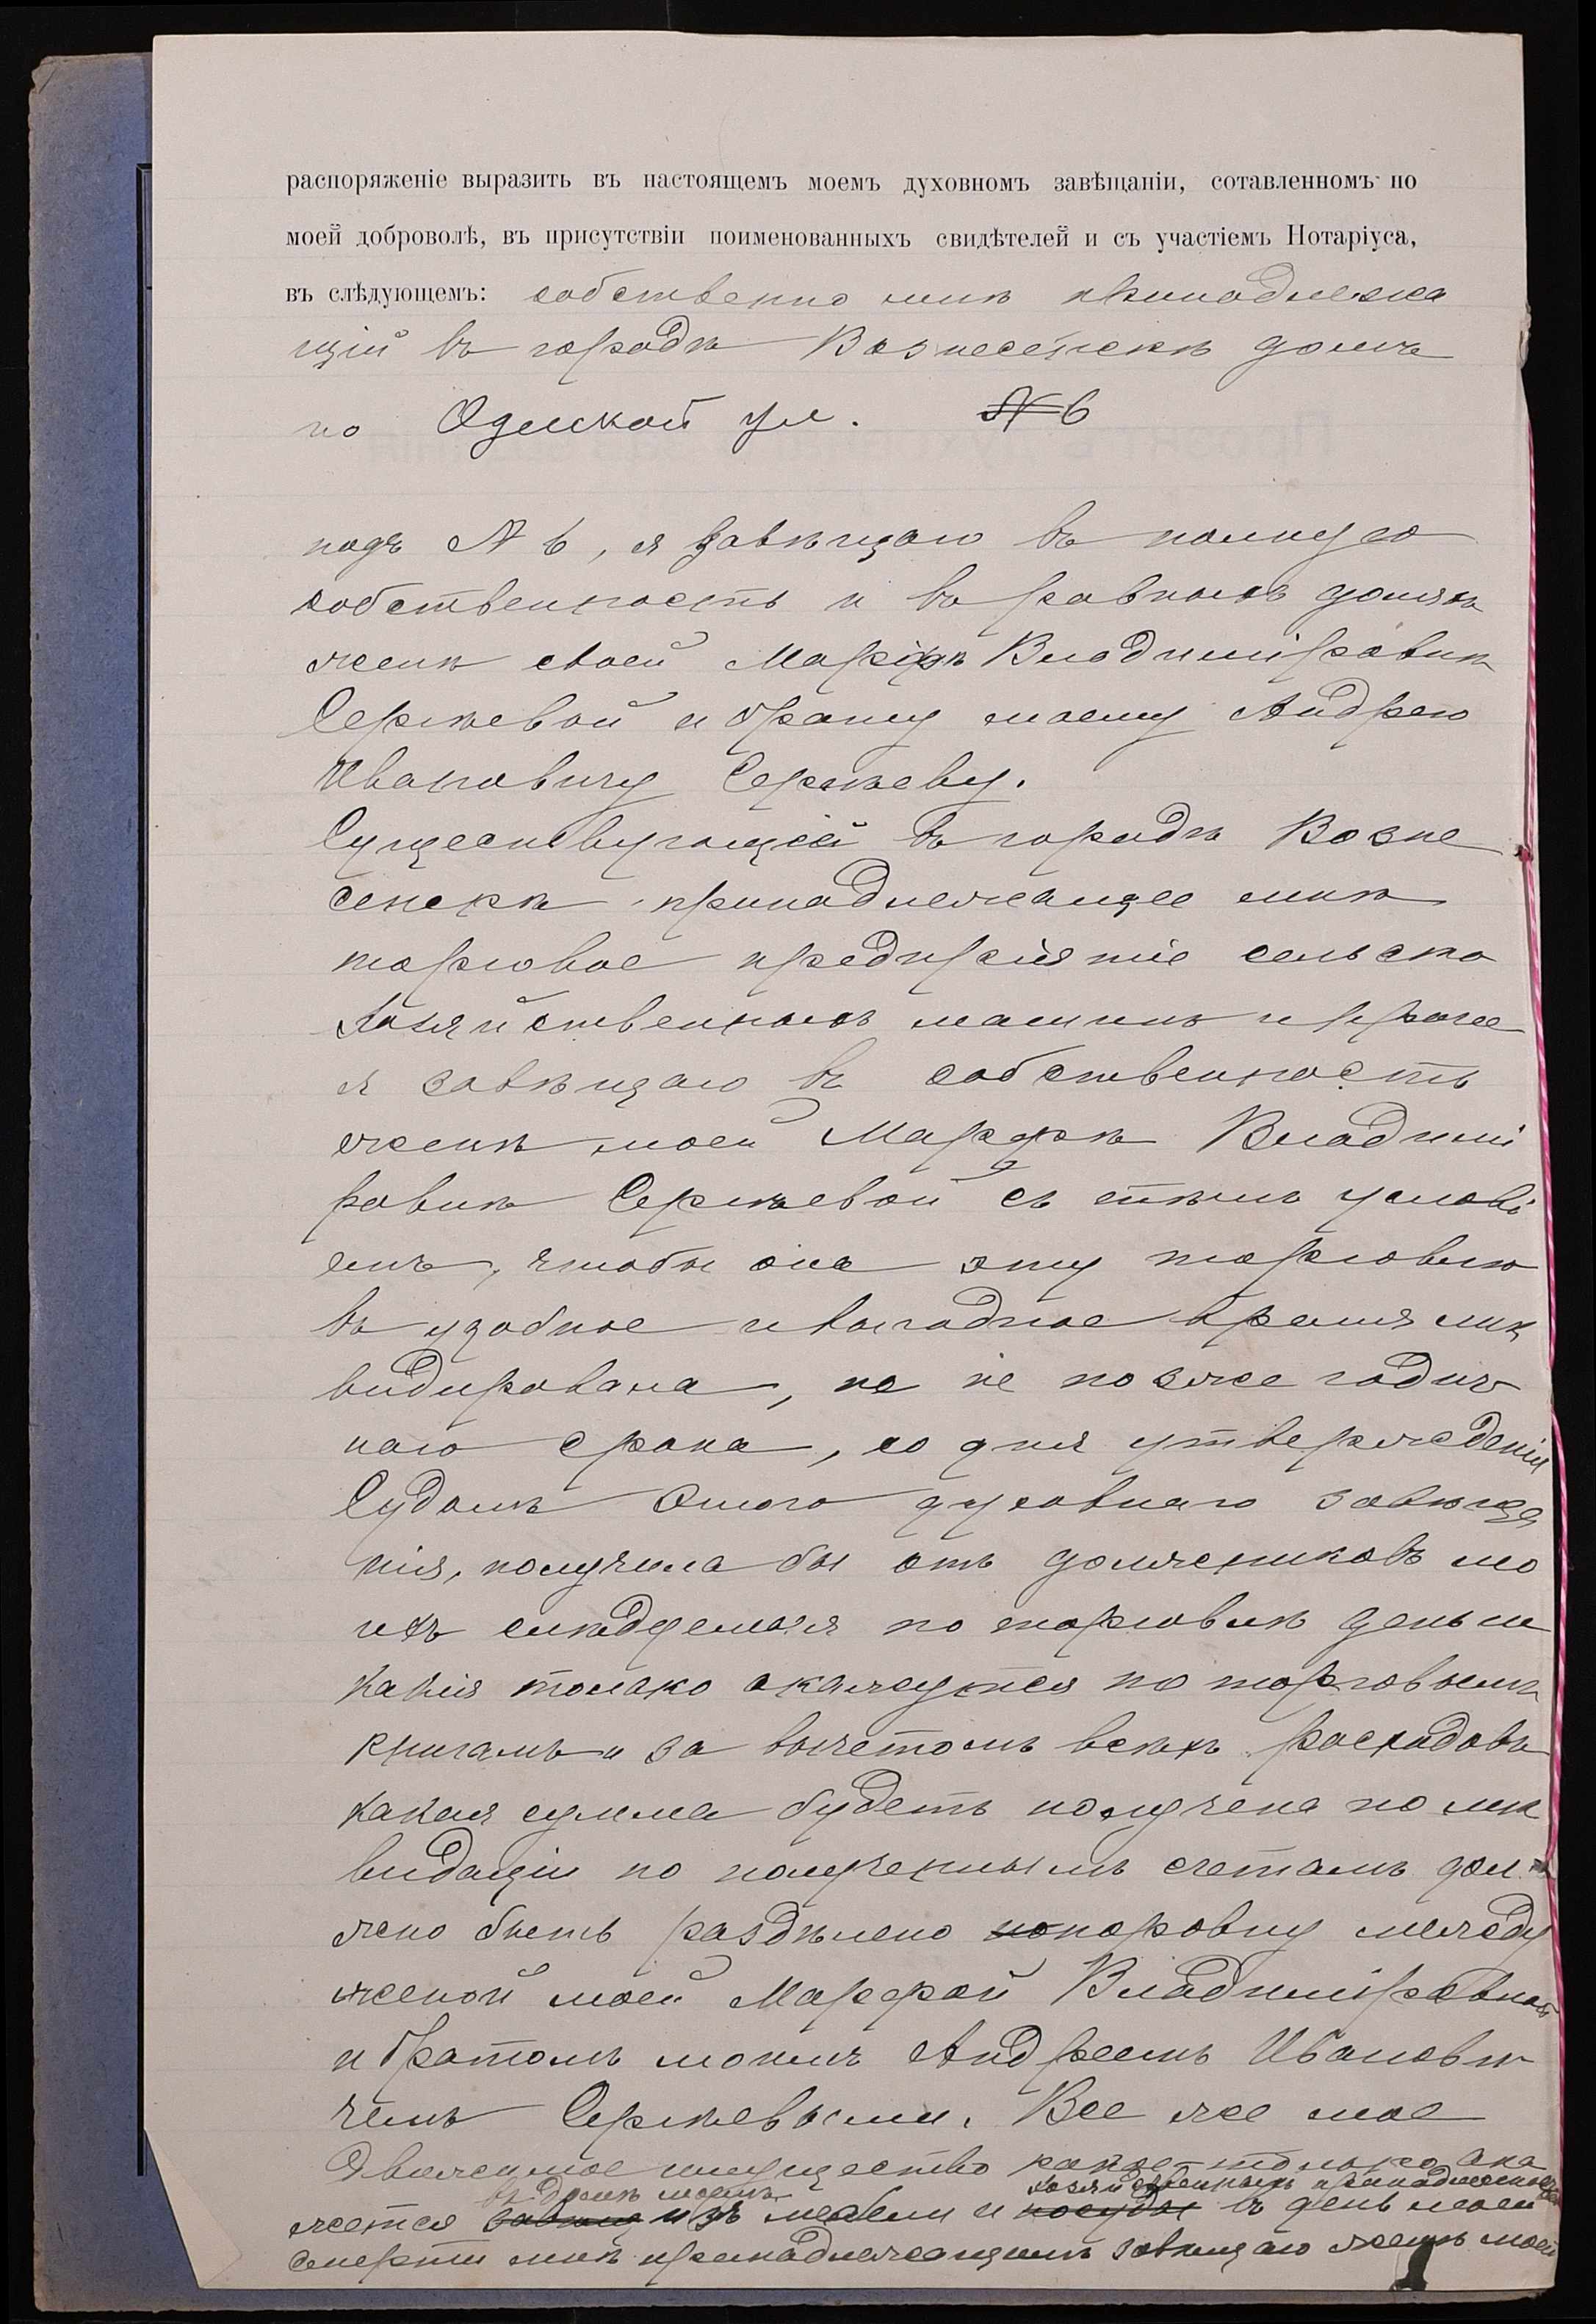 распоряженіе выразить въ настоящемъ моемъ духовномъ завѣщаніи, сотавленномъ по
моей доброволѣ, въ присутствіи поименованныхъ свидѣтелей и съ участіемъ Нотаріуса,
въ слѣдующемъ: собственно мнѣ принадлежа
щій въ городѣ Вознесенскѣ домъ
по Одесской ул. № 6
подъ № 6, я завѣщаю въ полную
собственность и въ равныхъ доляхъ
женѣ своей Марфѣ Владиміровнѣ
Сергѣевой и брату моему Андрею
Ивановичу Сергѣеву.
Существующей въ городѣ Возне
сенскѣ принадлежащее мнѣ
торговое предпріятіе сельско
хозяйственныхъ машинъ и прочее
я завѣщаю въ собственность
женѣ моей Марфѣ Владимі
ровнѣ Сергѣевой съ тѣмъ услові
емъ, чтобы она эту торговлю
въ удобное и выгодное время лик
видировала, но не позже годич
наго срока, со дня утвержденія
Судомъ этого духовнаго завѣща
нія, получила бы отъ должниковъ мо
ихъ слѣдуемыя по торговлѣ деньги
какія только окажутся по торговымъ
книгамъ и за вычетомъ всѣхъ расходовъ
какая сумма будетъ получена по лик
видаціи по полученнымъ счетамъ дол
жно быть раздѣлено поровну между
женой моей Марфой Владиміровной
и братомъ моимъ Андреемъ Иванови
чемъ Сергѣевыми. Все же мое
движимое имущество какое только ока
въ домѣ моемъ хозяйственныхъ принадлежностей
жется изъ мебели и посуды въ день моей
смерти мнѣ принадлежащимъ завѣщаю женѣ моей